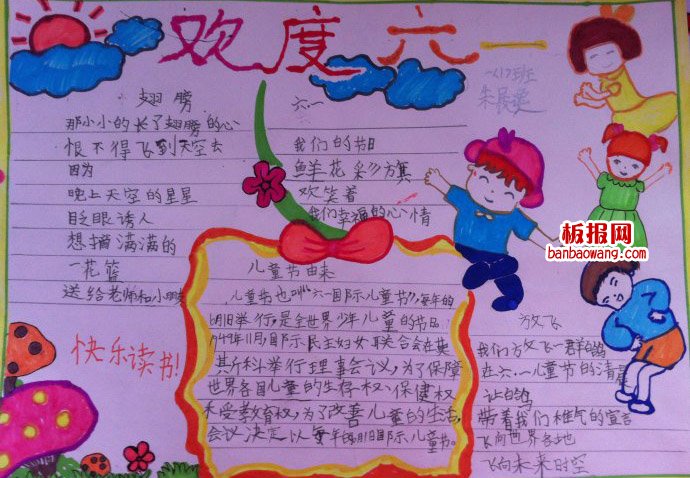 欢度六一
一(17)班
翅膀
那小小的长了翅膀的心
恨不得飞到天空去
因为
晚上天空的星星
眨眼诱人
想摘满满的
一花篮
送给老师和小
六一
我们的节日
鲜花彩旗
欢笑着
我们幸福的心情
板报网
banbaowang.com
快乐读书!
儿童节由来
儿童节也叫“六一国际儿童节”,每年的
6月1日举行,是全世界少年儿童的节日。
1949年11月国际民主妇女联合会在莫
斯科举行理事会议,为了保障
世界各国儿童的生存权、保健权
和受教育权,为了改善儿童的生活,
会议决定以每年的6月1日国际儿童节。
放飞
我们放飞一群白鸽
在六一儿童节的清晨
让白鸽
带着我们稚气的宣言
飞向世界各地
飞向未来时空